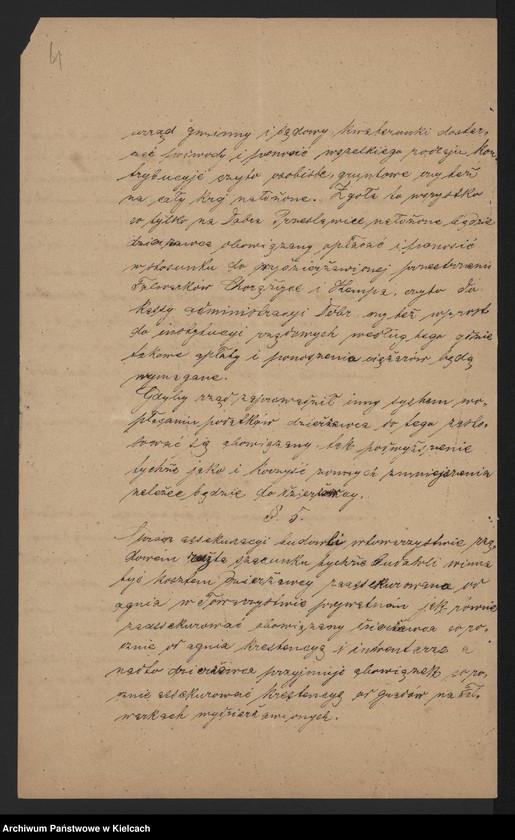 4
urząd gminny i sądowy, kwaterunki dostar-
czać podwody i ponosić wszelkiego rodzaju kon-
trybucyje czyto osobiste, gruntowe czy też
na cały kraj nałożone. Zgoła to wszystko
co tylko na Dobra Przesławice nałożone będzie
dzierżawca obowiązany opłacać i ponosić
w stosunku do wydzierżawionej przestrzeni
Folwarków i Kempa, czyto do
kassy administracyi Dóbr, czy też wprost
do instytucyi rządowych według tego gdzie
takowe opłaty i ponoszenia ciężarów będą
wymagane.
Gdyby rząd zaprowadził inny system wo-
płacaniu podatków dzierżawca do tego zasto-
sować się obowiązany, tak podwyższenie
tychże jako i korzyść z onych zmniejszenia
należeć będzie do dzierżawcy.
§. 5.
Oprócz assekuracyi budowli w towarzystwie rzą-
dowem szacunku tychże budowli winna
być kosztem Dzierżawcy zaassekurowana od
ognia w Towarzystwie prywatnem jak również
zaassekurować obowiązany dzierżawca coro-
cznie od ognia krestencyą i inwentarze a
nadto dzierżawca przyjmuje obowiązek coro-
cznie assekurować krestencyą od gradów na fol-
warkach wydzierżawionych.
Archiwum Państwowe w Kielcach